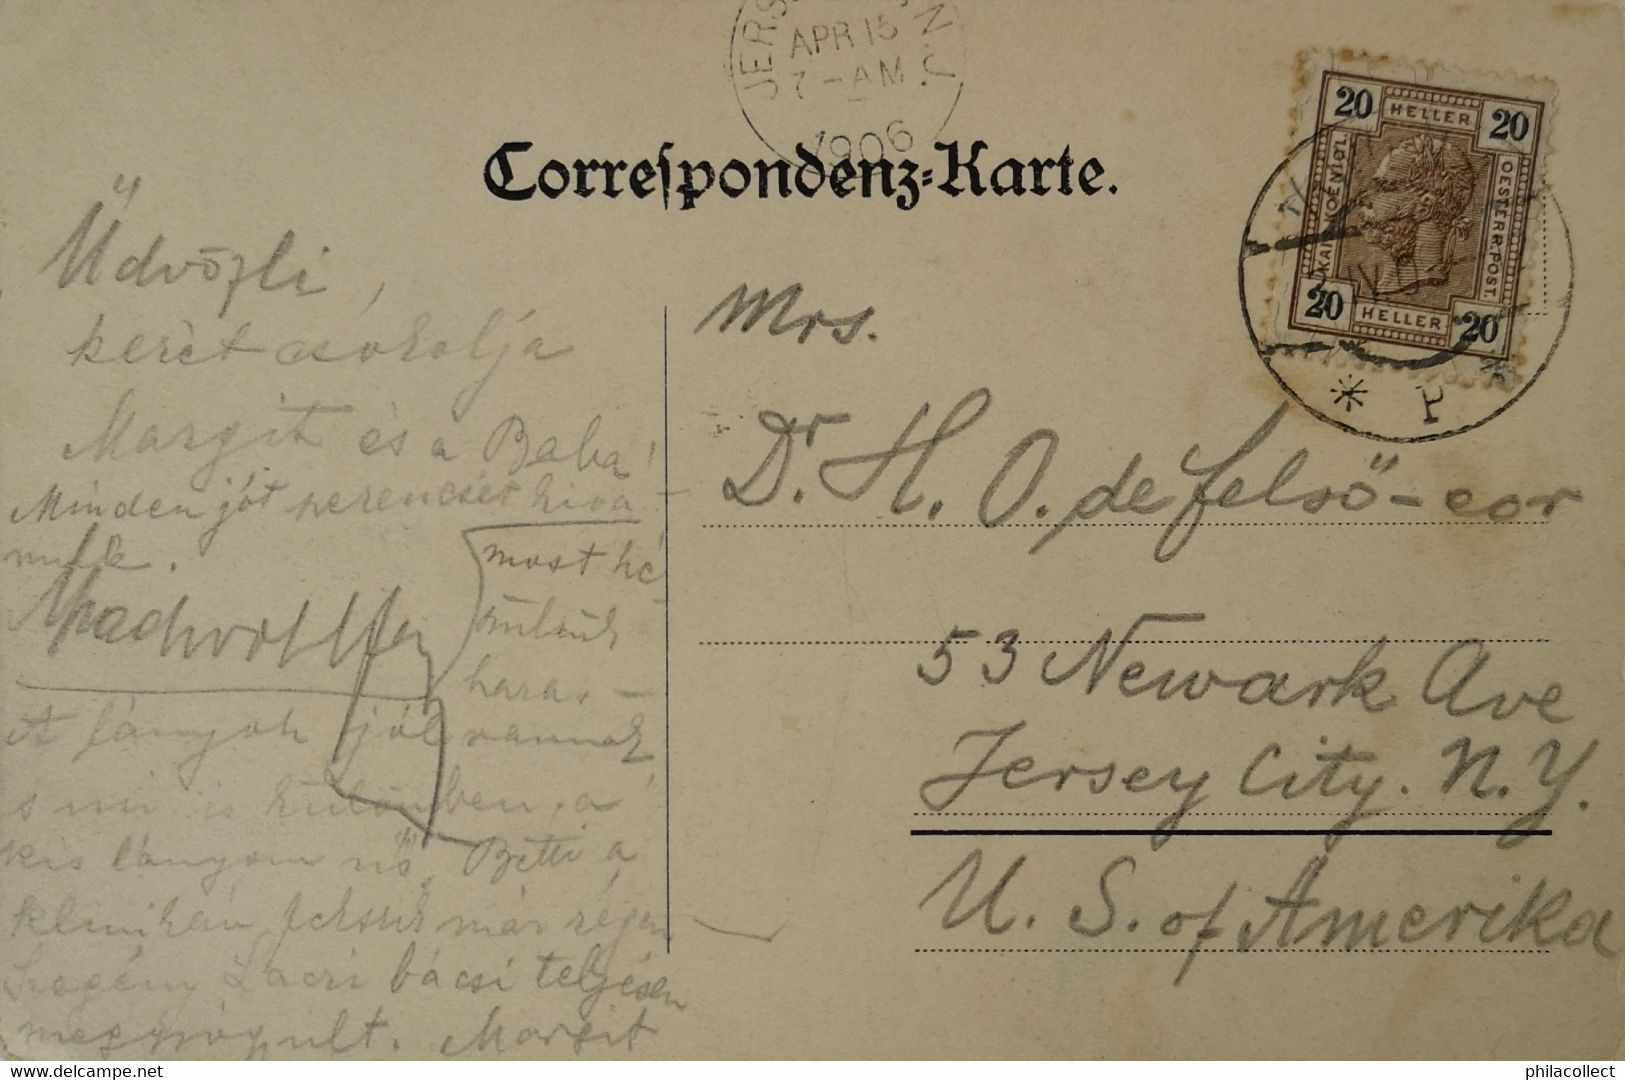 JERS
APR 15
7-AM
N.J.
1906
Correspondenz-Karte.
20 HELLER 20
KAIS. KOENIGL.
OESTERR. POST.
20 HELLER 20
Üdvözli,
kezét csókolja
Margit és a Baba!
Minden jót szerencsét kívá-
nunk.
most hé
külünk
haza
lányok jól vannak
s mi is különben, a
kis lányom nő, Betti a
klinikán fekszik már régen
Szegény Laczi bácsi teljesen
Margit
Mrs.
Dr. H. O. de Felső-eor
53 Newark Ave
Jersey City. N. Y.
U. S. of Amerika
www.delcampe.net
philacollect